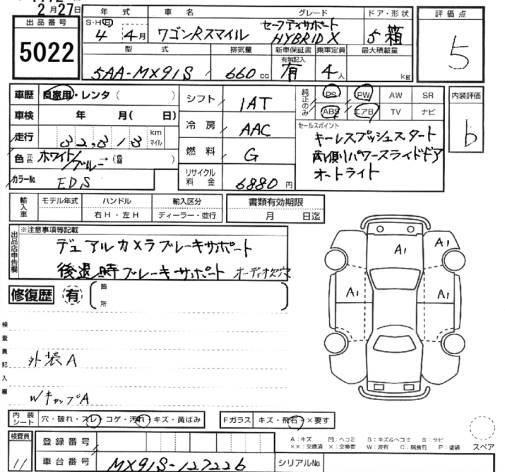 2月27日
出品番号 5022
年式 S・H・R 4年4月
車名 ワゴンRスマイル
グレード セーフティサポート HYBRID X
ドア・形状 5 箱
評価点 5
型式 5AA-MX91S
排気量 660cc
新車保証書 有無記入 有
乗車定員 4人
最大積載量 kg
車歴 自家用・レンタ( )
車検 年 月( 日)
走行 32,813 km マイル
色 ホワイト/ブルー
カラーNo. EDS
シフト IAT
冷房 AAC
燃料 G
リサイクル料金 6880円
純正のみ PS PW AW SR
ABS エアB TV ナビ
セールスポイント
キーレスプッシュスタート
両側パワースライドドア
オートライト
内装評価 b
輸入車 モデル年式 ハンドル 右H・左H 輸入区分 ディーラー・並行
書類有効期限 月 日迄
出品店申告欄 ※注意事項等記載
デュアルカメラブレーキサポート
後退時ブレーキサポート
修復歴 有 箇所
A1 A1
A1 A1
検査員記入欄
外装A
WキャップA
内装シート 穴・破れ・スレ・コゲ・汚れ キズ・黄ばみ
Fガラス キズ・飛石・×要す
検査員 11
登録番号
車台番号 MX91S-127226
シリアルNo
A:キズ
スペア